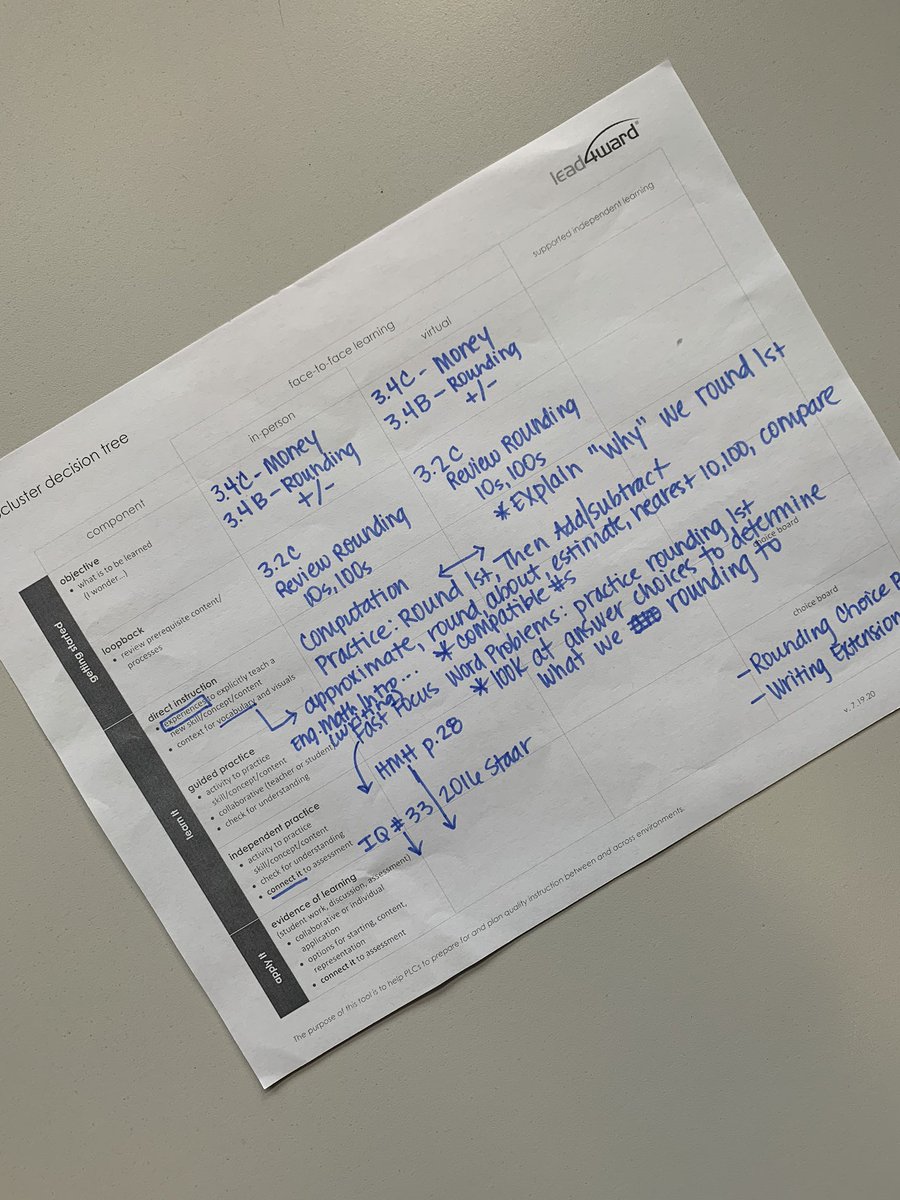 lead4ward
cluster decision tree
face-to-face learning
supported independent learning
component
in-person
virtual
getting started
objective
• what is to be learned
(I wonder...)
3.4C - Money
3.4B - Rounding
+/-
3.4C - Money
3.4B - Rounding
+/-
loopback
• review prerequisite content/
processes
3.2C
Review Rounding
10s, 100s
3.2C
Review Rounding
10s, 100s
*Explain "Why" we round 1st
learn it
direct instruction
• experiences to explicitly teach a
new skill/concept/content
• context for vocabulary and visuals
Computation
Practice: Round 1st, Then Add/Subtract
approximate, round, about, estimate, nearest 10, 100, compare
* compatible #s
Eng. Math Intro...
(writing)
guided practice
• activity to practice
skill/concept/content
• collaborative (teacher or student)
• check for understanding
Fast Focus Word Problems: practice rounding 1st
* look at answer choices to determine
what we rounding to
HMH p.28
choice board
independent practice
• activity to practice
skill/concept/content
• check for understanding
• connect it to assessment
IQ #33
2016 Staar
apply it
evidence of learning
(student work, discussion, assessment)
• collaborative or individual
application
• options for starting, content,
representation
• connect it to assessment
choice board
- Rounding Choice
- Writing Extension
The purpose of this tool is to help PLCs to prepare for and plan quality instruction between and across environments.
v. 7.19.20